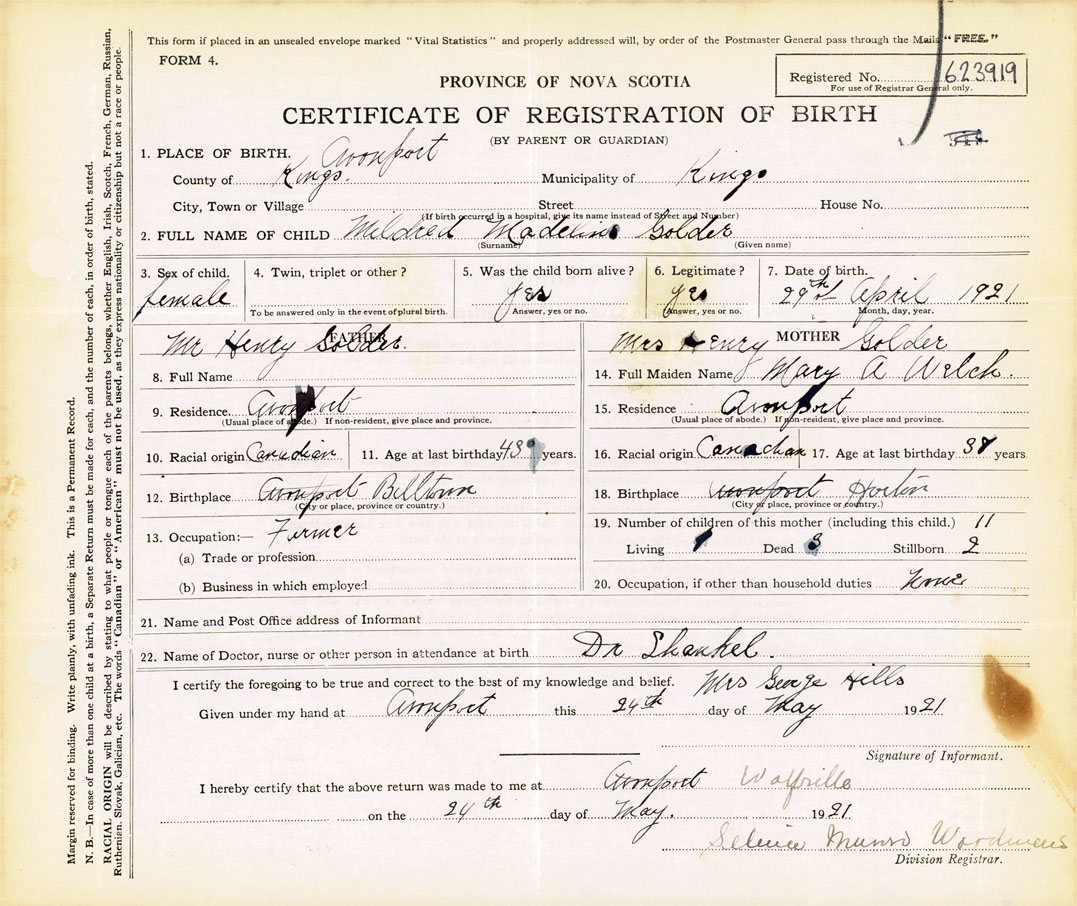 This form if placed in an unsealed envelope marked "Vital Statistics" and properly addressed will, by order of the Postmaster General pass through the Mails "FREE."
FORM 4.
PROVINCE OF NOVA SCOTIA
Registered No. 623919
For use of Registrar General only.
CERTIFICATE OF REGISTRATION OF BIRTH
(BY PARENT OR GUARDIAN)
1. PLACE OF BIRTH. Avonport
County of Kings. Municipality of Kings
City, Town or Village Street House No.
(If birth occurred in a hospital, give its name instead of Street and Number)
2. FULL NAME OF CHILD Mildred Madeline Golder
(Surname) (Given name)
3. Sex of child. 4. Twin, triplet or other? 5. Was the child born alive? 6. Legitimate? 7. Date of birth.
female yes yes 29th of April 1921
To be answered only in the event of plural birth. Answer, yes or no. Answer, yes or no. Month, day, year.
FATHER
Mr Henry Golder.
8. Full Name
9. Residence Avonport
(Usual place of abode.) If non-resident, give place and province.
10. Racial origin Canadian 11. Age at last birthday 43 years.
12. Birthplace Avonport Billtown
(City or place, province or country.)
13. Occupation:— Firmer
(a) Trade or profession
(b) Business in which employed
MOTHER
Mrs Henry Golder
14. Full Maiden Name Mary A Welch.
15. Residence Avonport
(Usual place of abode.) If non-resident, give place and province.
16. Racial origin Canadian 17. Age at last birthday 38 years
18. Birthplace Avonport Horton
(City or place, province or country.)
19. Number of children of this mother (including this child.) 11
Living Dead 3 Stillborn 2
20. Occupation, if other than household duties None
21. Name and Post Office address of Informant
22. Name of Doctor, nurse or other person in attendance at birth Dr Shankel.
I certify the foregoing to be true and correct to the best of my knowledge and belief. Mrs George Hills
Given under my hand at Avonport this 24th day of May 1921
Signature of Informant.
I hereby certify that the above return was made to me at Avonport Wolfville
on the 24th day of May. 1921
Munro
Division Registrar.
Margin reserved for binding. Write plainly, with unfading ink. This is a Permanent Record.
N. B.—In case of more than one child at a birth, a Separate Return must be made for each, and the number of each, in order of birth, stated.
RACIAL ORIGIN will be described by stating to what people or tongue each of the parents belongs, whether English, Irish, Scotch, French, German, Russian,
Ruthenian, Slovak, Galician, etc. The words "Canadian" or "American" must not be used, as they express nationality or citizenship but not a race or people.